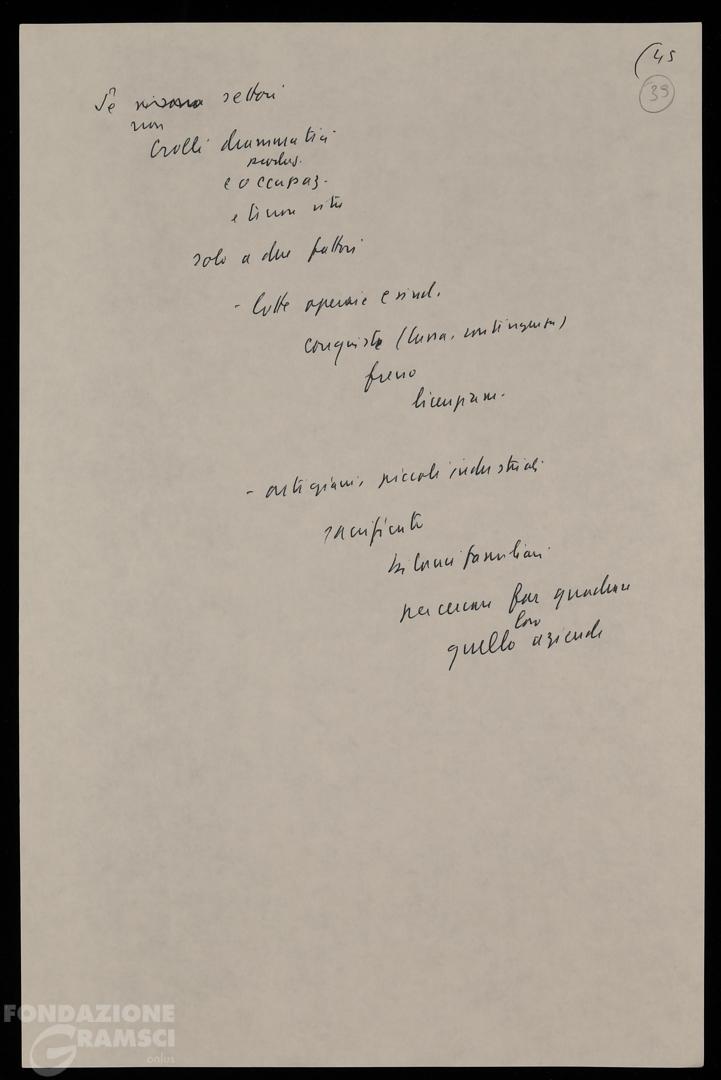 (45
39
Se in settori
non
Crolli drammatici
produz.
e occupaz.
e tenore vita
solo a due fattori
- lotte operaie e sind.
conquiste (Cassa, contingenza)
freno
licenziam.
- artigiani, piccoli industriali
sacrificato
bilanci familiari
per cercare far quadrare
loro
quello aziende
FONDAZIONE
GRAMSCI
onlus